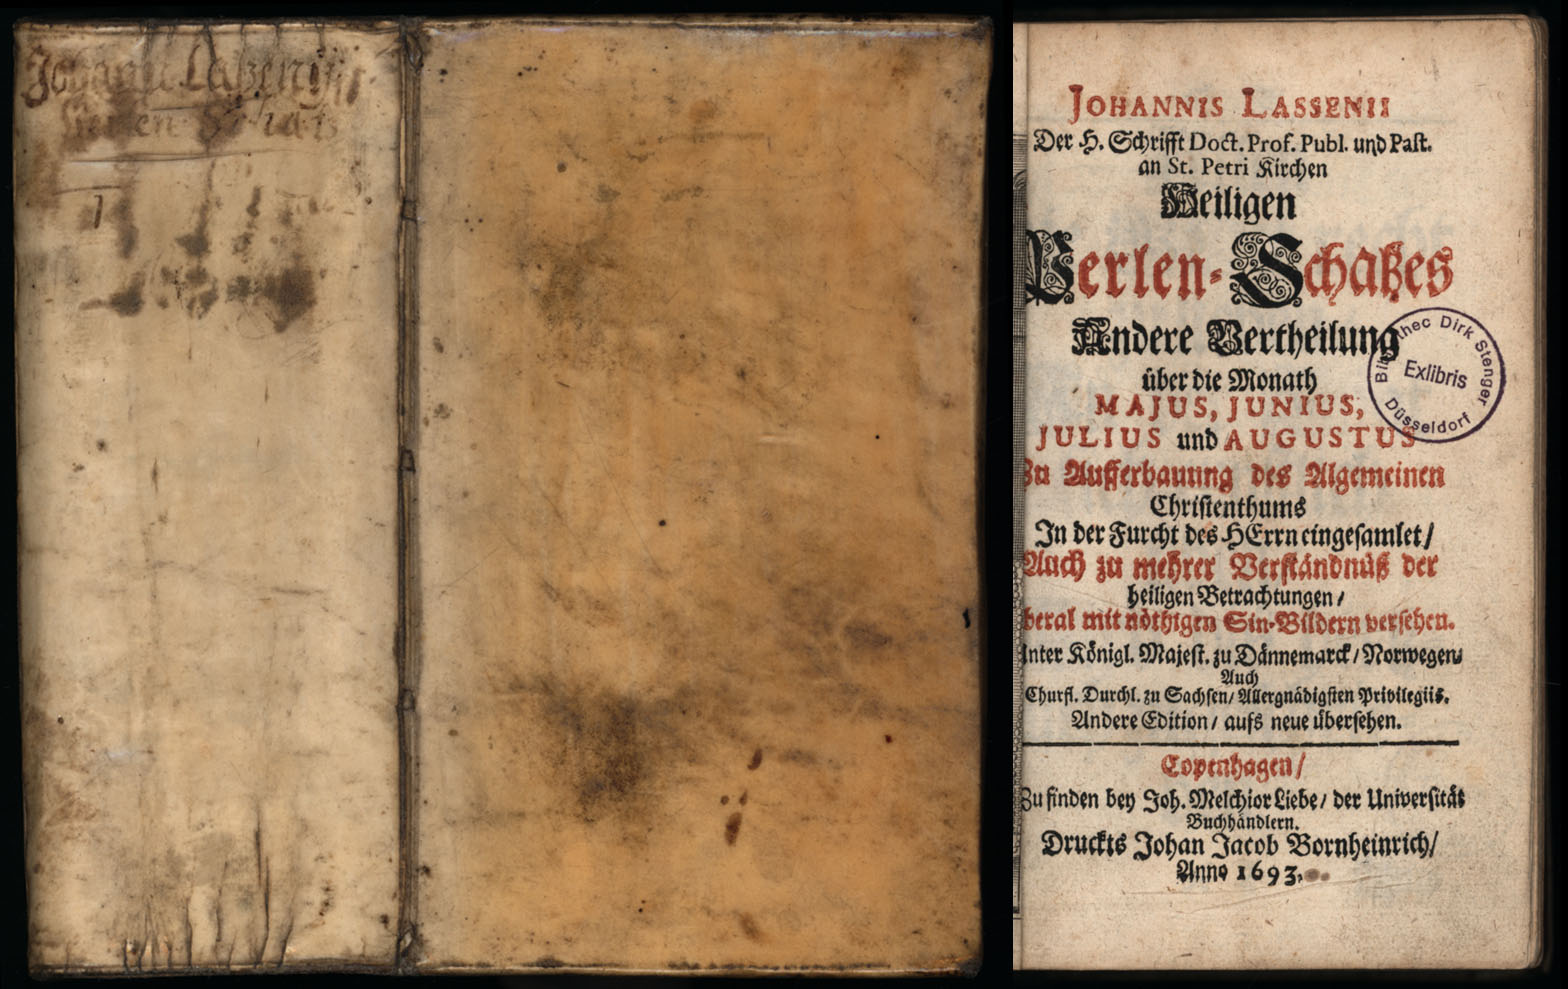 JOHANNIS LASSENII
Der H. Schrifft Doct. Prof. Publ. und Past.
an St. Petri Kirchen
Heiligen
Perlen-Schatzes
Andere Vertheilung
über die Monath
MAJUS, JUNIUS,
JULIUS und AUGUSTUS
Zu Aufferbauung des Algemeinen
Christenthums
In der Furcht des HErrn eingesamlet/
Auch zu mehrer Verständnüß der
heiligen Betrachtungen/
beral mit nöthigen Sin-Bildern versehen.
nter Königl. Majest. zu Dännemarck/Norwegen/
Auch
Churfl. Durchl. zu Sachsen/ Allergnädigsten Privilegiis.
Andere Edition/ aufs neue übersehen.
Copenhagen/
Zu finden bey Joh. Melchior Liebe/ der Universität
Buchhändlern.
Druckts Johan Jacob Bornheinrich/
Anno 1693.
thec Dirk Stenger
Exlibris
Düsseldorf